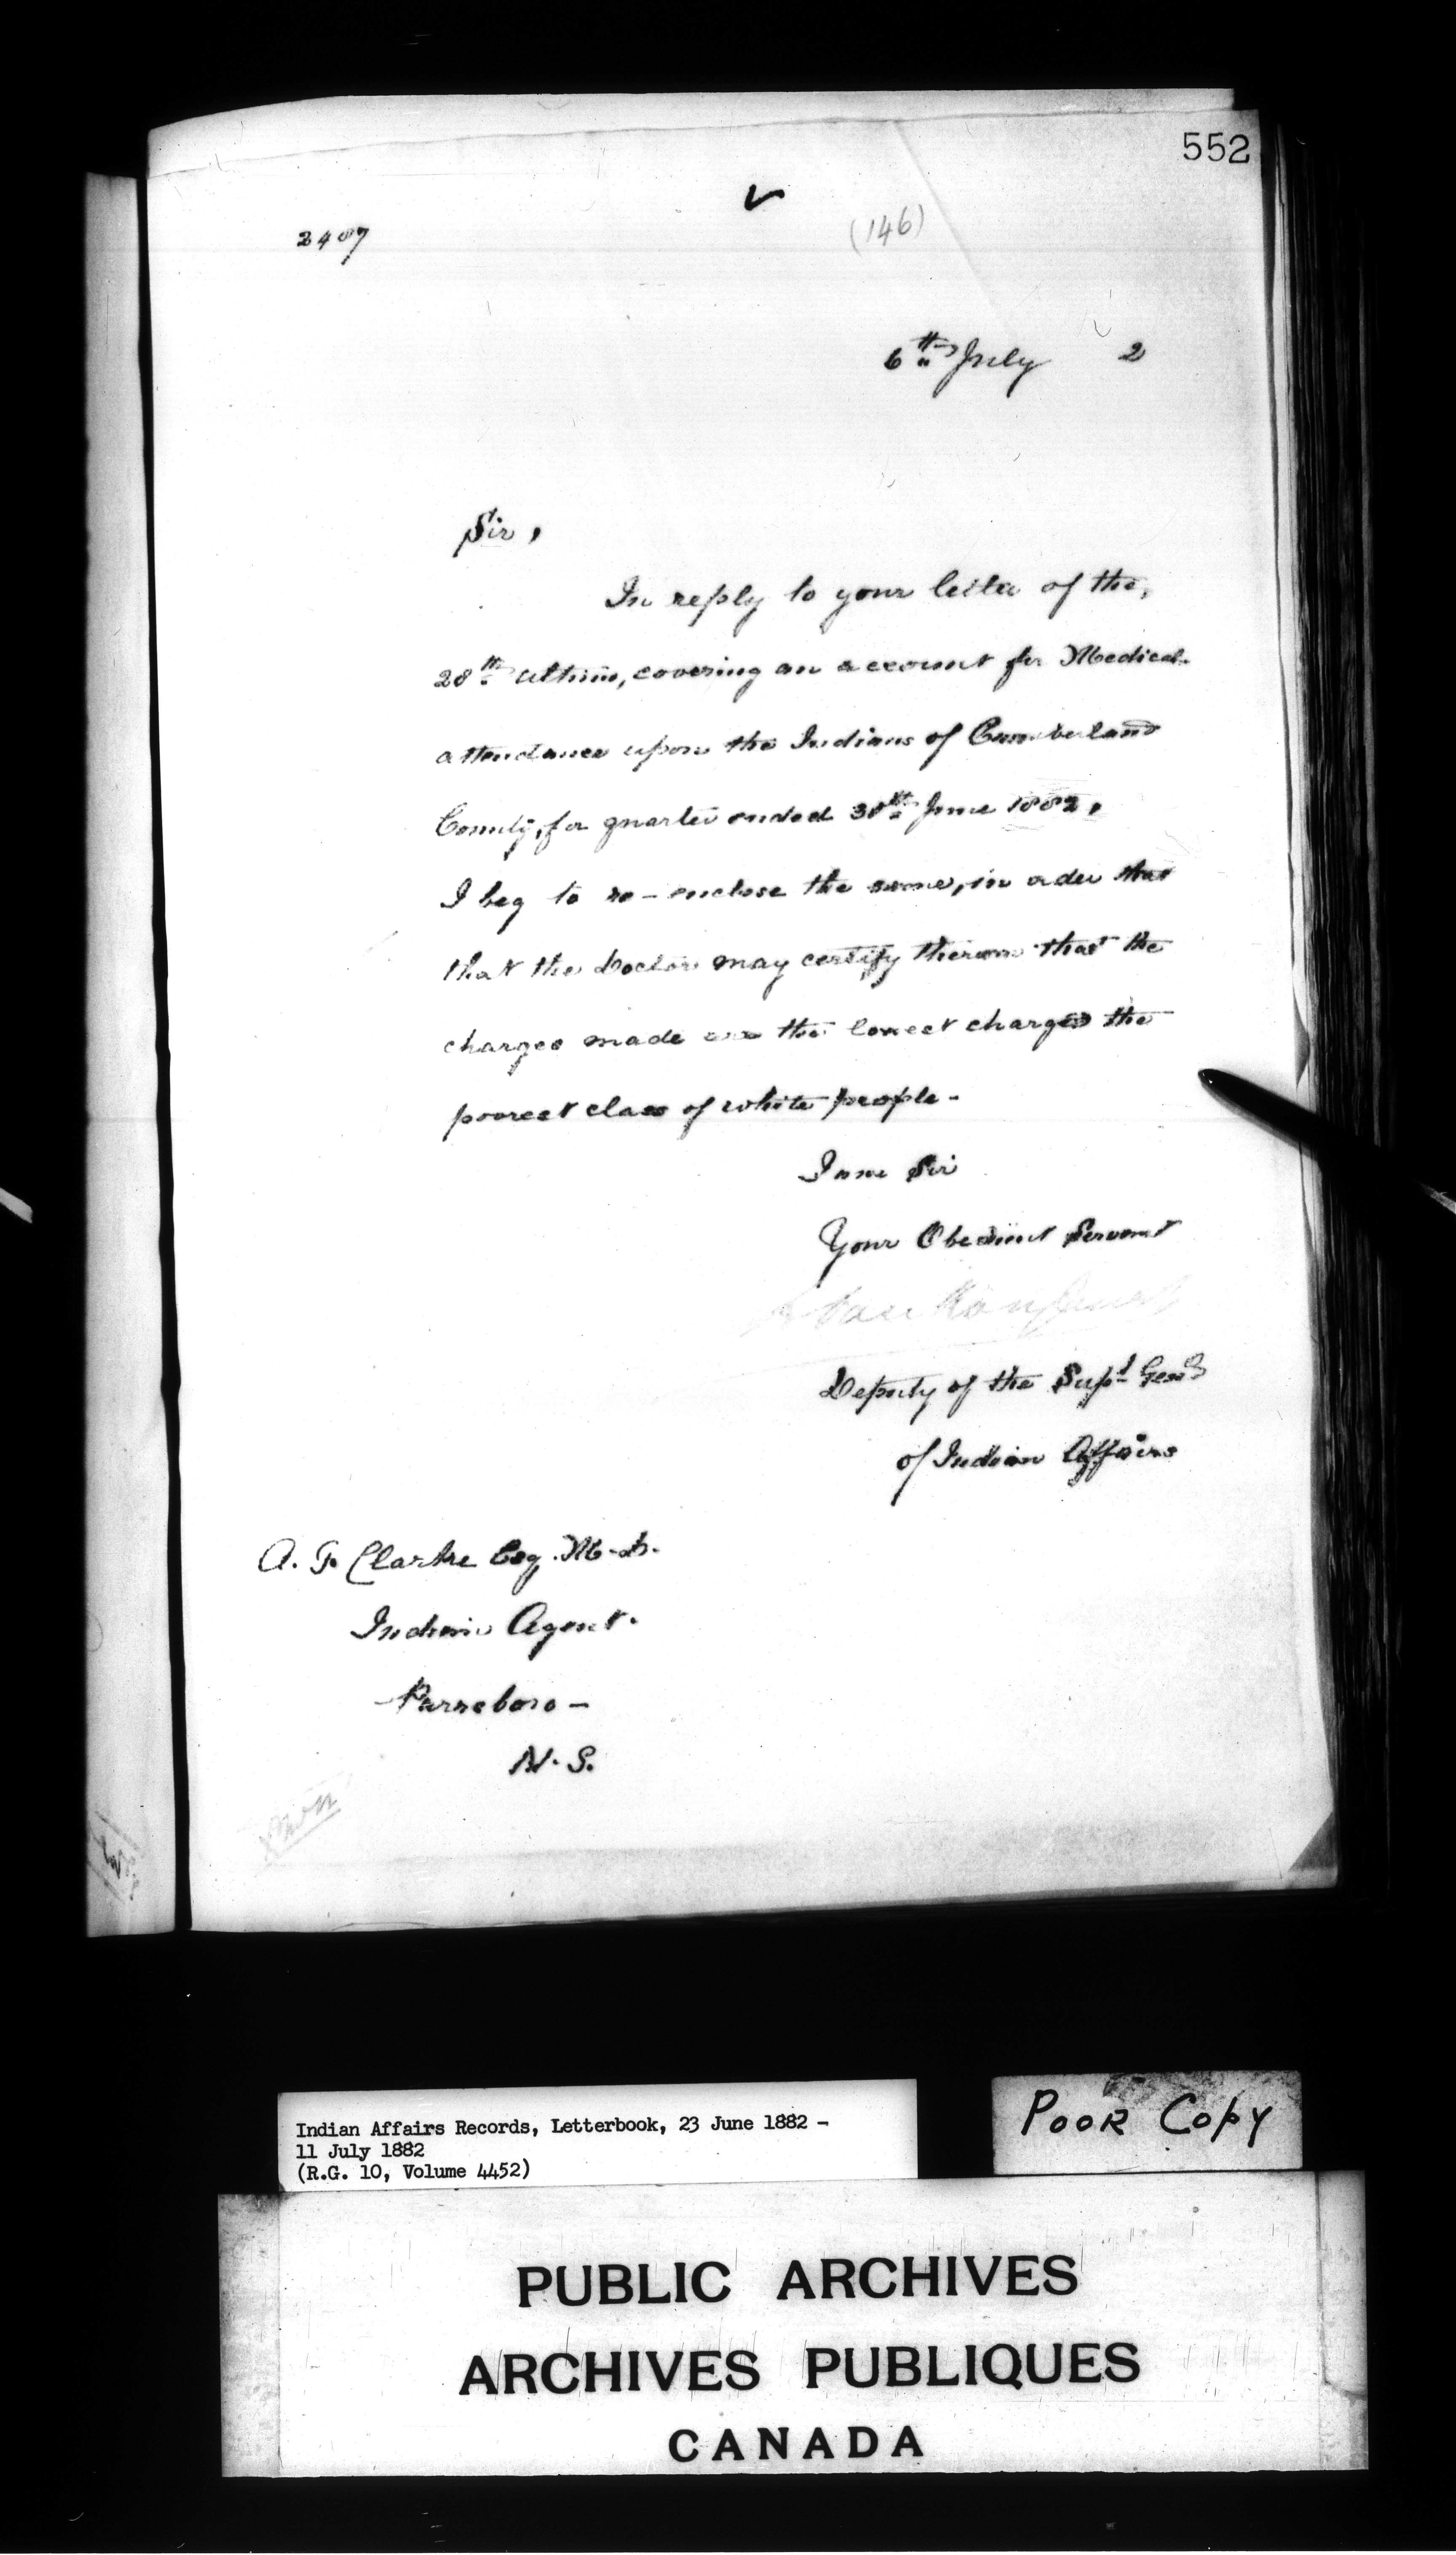 552
2407
(146)
6th July 2
Sir,
In reply to your letter of the,
28th ultimo, covering an account for Medical
attendance upon the Indians of Cumberland
County, for quarter ended 30th June 1882,
I beg to re-enclose the same, in order that
that the Doctor may certify thereon that the
charges made are the lowest charged the
poorest class of white people-
I am Sir
Your Obedient Servant
L VanKoughnet
Deputy of the Supt Genl
of Indian Affairs
A. G. Clarke Esq. M.D.
Indian Agent.
Parrsboro -
N.S.
Indian Affairs Records, Letterbook, 23 June 1882 -
11 July 1882
(R.G. 10, Volume 4452)
POOR COPY
PUBLIC ARCHIVES
ARCHIVES PUBLIQUES
CANADA